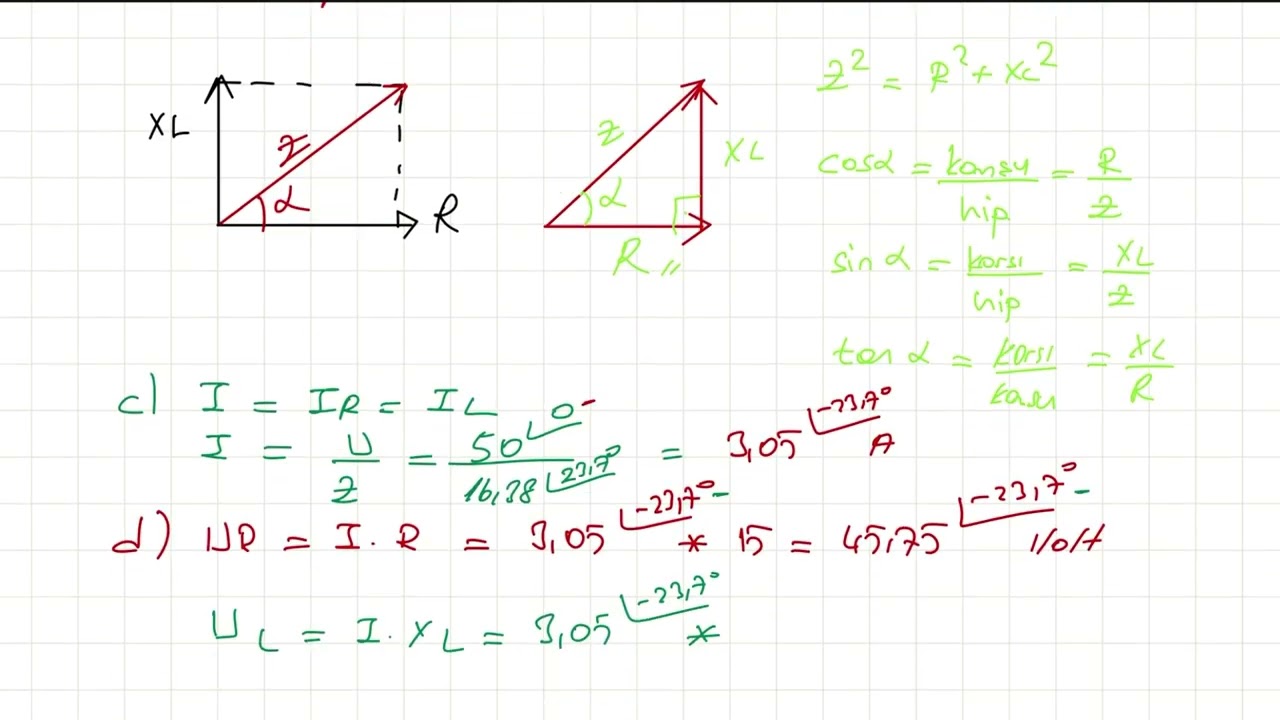 XL
Z
α
R
Z
α
XL
R //
Z² = R² + XL²
cosα = komsu/hip = R/Z
sinα = karsı/hip = XL/Z
tanα = karsı/komsu = XL/R
c) I = IR = IL
I = U/Z = 50∠0°/16,38∠23,7° = 3,05∠-23,7° A
d) UR = I.R = 3,05∠-23,7° * 15 = 45,75∠-23,7° Volt
UL = I.XL = 3,05∠-23,7° *